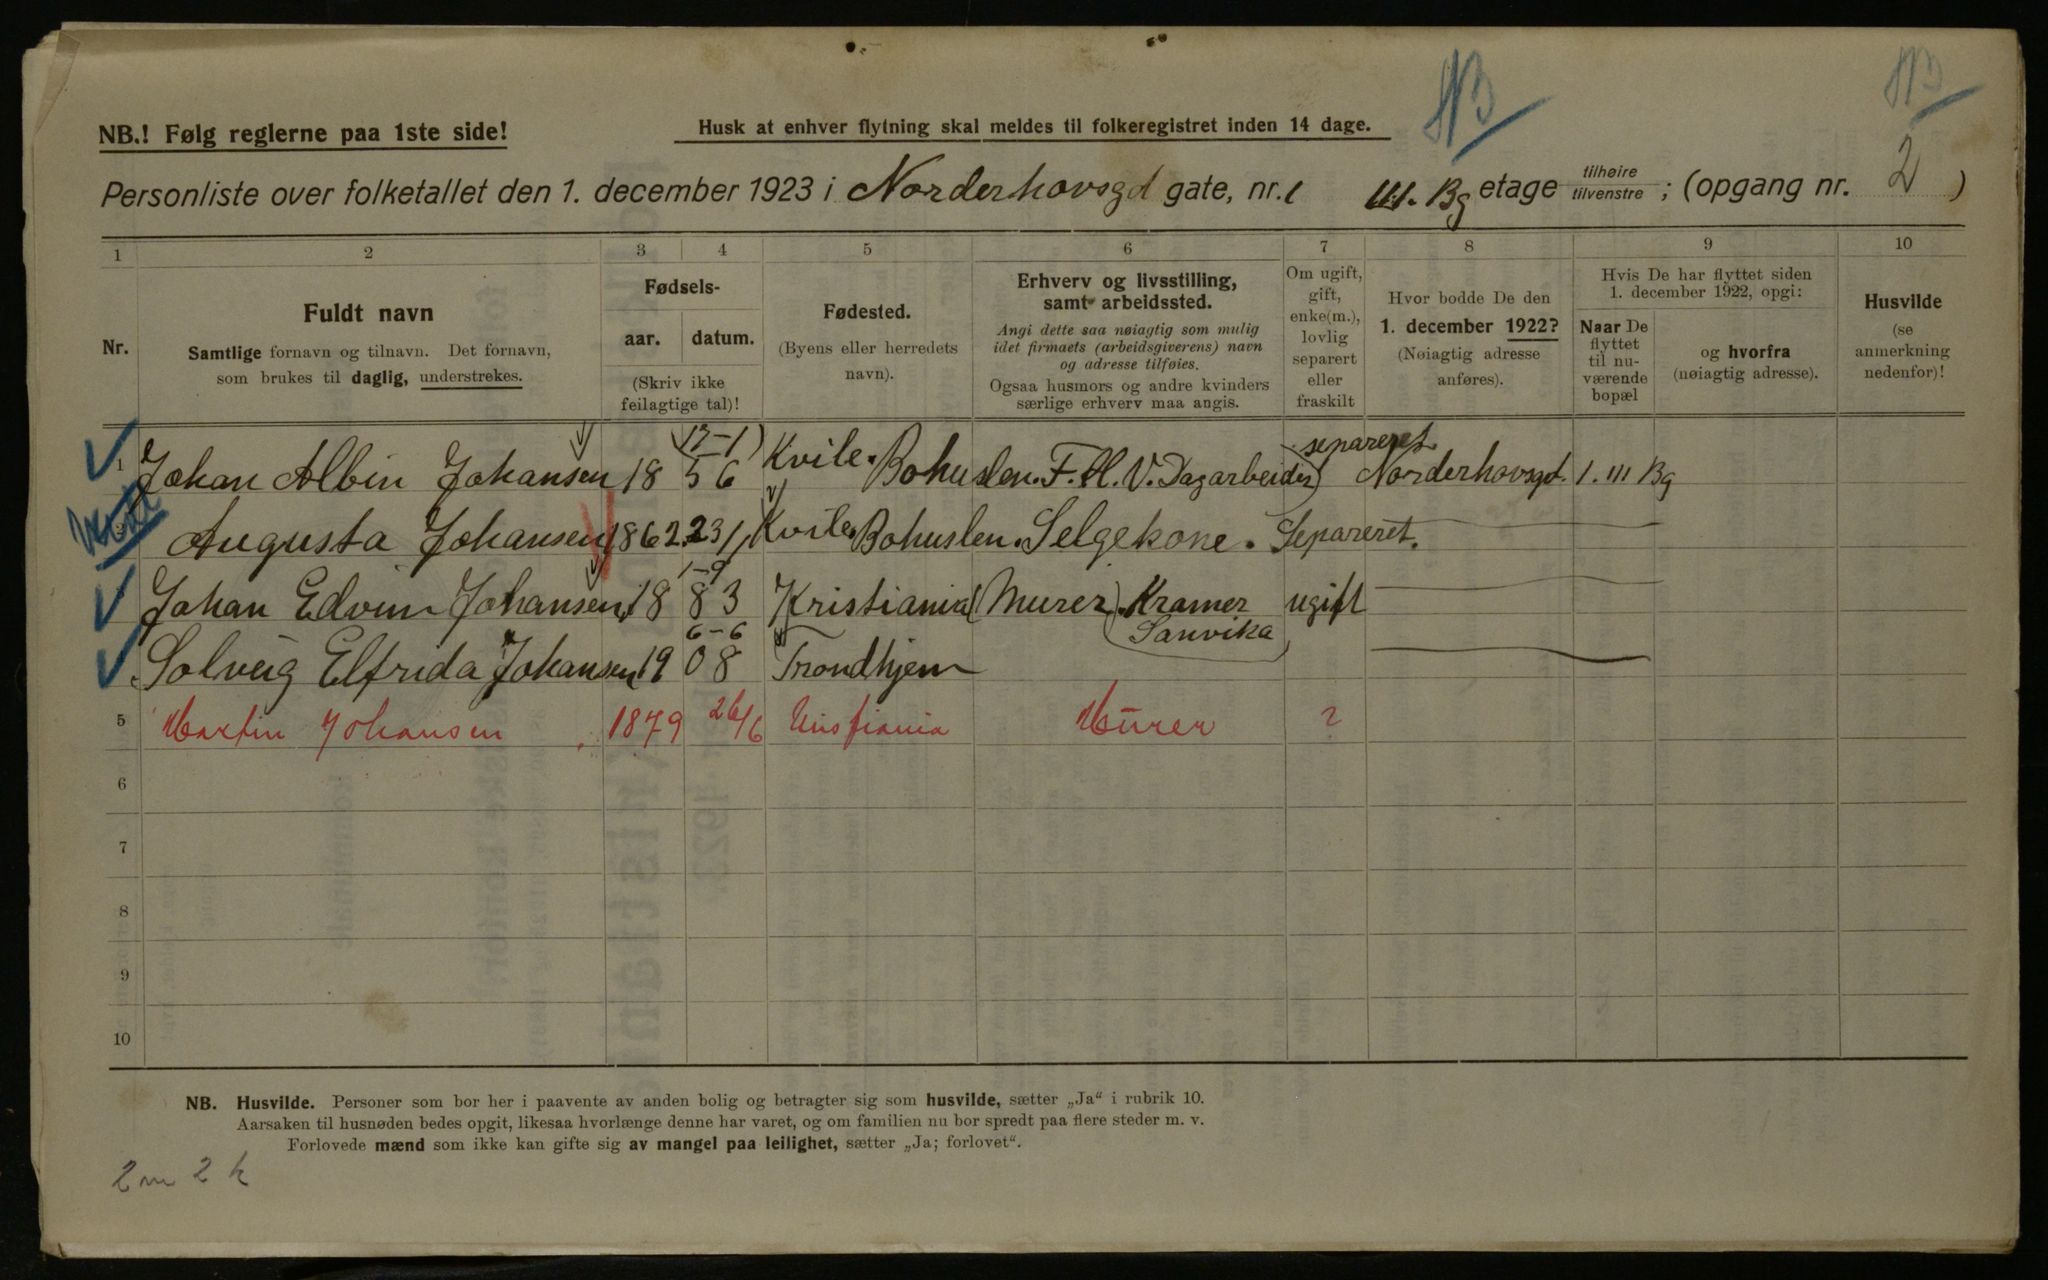 NB
NB
NB.! Følg reglerne paa 1ste side!
Husk at enhver flytning skal meldes til folkeregistret inden 14 dage.
Personliste over folketallet den 1. december 1923 i Norderhovsgd gate, nr. 1 III. Bg etage tilhøire tilvenstre ; (opgang nr. 2 )
1 2 3 4 5 6 7 8 9 10
Nr.
Fuldt navn
Samtlige fornavn og tilnavn. Det fornavn,
som brukes til daglig, understrekes.
Fødsels-
aar. datum.
(Skriv ikke
feilagtige tal)!
Fødested.
(Byens eller herredets
navn).
Erhverv og livsstilling,
samt arbeidssted.
Angi dette saa nøiagtig som mulig
idet firmaets (arbeidsgiverens) navn
og adresse tilføies.
Ogsaa husmors og andre kvinders
særlige erhverv maa angis.
Om ugift,
gift,
enke(m.),
lovlig
separert
eller
fraskilt
Hvor bodde De den
1. december 1922?
(Nøiagtig adresse
anføres).
Hvis De har flyttet siden
1. december 1922, opgi:
Naar De
flyttet
til nu-
værende
bopæl
og hvorfra
(nøiagtig adresse).
Husvilde
(se
anmerkning
nedenfor)!
1 Johan Albin Johansen 18 56 (17-1) Kvile. Bohuslen. F. H. V. Dagarbeider) separeret Norderhovsgd. 1. III Bg
2 Augusta Johansen 1862. 23/1 Kvile Bohuslen. Selgekone. Separeret.
Johan Edvin Johansen 18 83 1-9 Kristiania (Murer). Kramer ugift
Sanvika
Solveig Elfrida Johansen 19 08 6-6 Trondhjem
5 Martin Johansen 1879 26/6 Kristiania Murer ?
6
7
8
9
10
NB. Husvilde. Personer som bor her i paavente av anden bolig og betragter sig som husvilde, sætter „Ja“ i rubrik 10.
Aarsaken til husnøden bedes opgit, likesaa hvorlænge denne har varet, og om familien nu bor spredt paa flere steder m. v.
Forlovede mænd som ikke kan gifte sig av mangel paa leilighet, sætter „Ja; forlovet“.
2 m 2 k